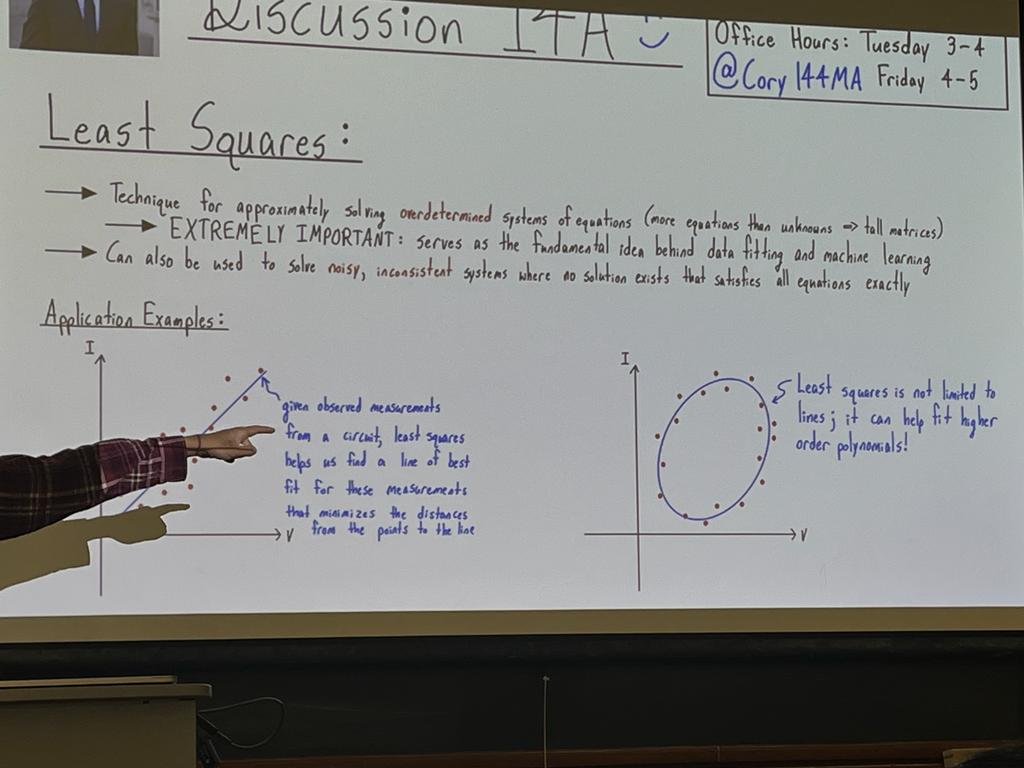 Discussion 14A
Office Hours: Tuesday 3-4
@Cory 144MA Friday 4-5
Least Squares:
Technique for approximately solving overdetermined systems of equations (more equations than unknowns => tall matrices)
EXTREMELY IMPORTANT: serves as the fundamental idea behind data fitting and machine learning
Can also be used to solve noisy, inconsistent systems where no solution exists that satisfies all equations exactly
Application Examples:
I
given observed measurements
from a circuit, least squares
helps us find a line of best
fit for these measurements
that minimizes the distances
from the points to the line
V
I
Least squares is not limited to
lines; it can help fit higher
order polynomials!
V